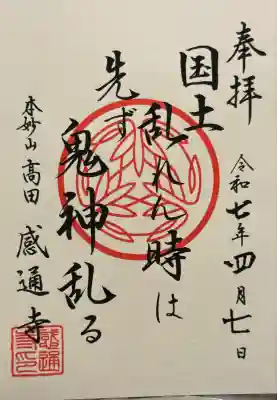 奉拝
令和七年四月七日
国土乱れん時は
先ず鬼神乱る
本妙山高田感通寺